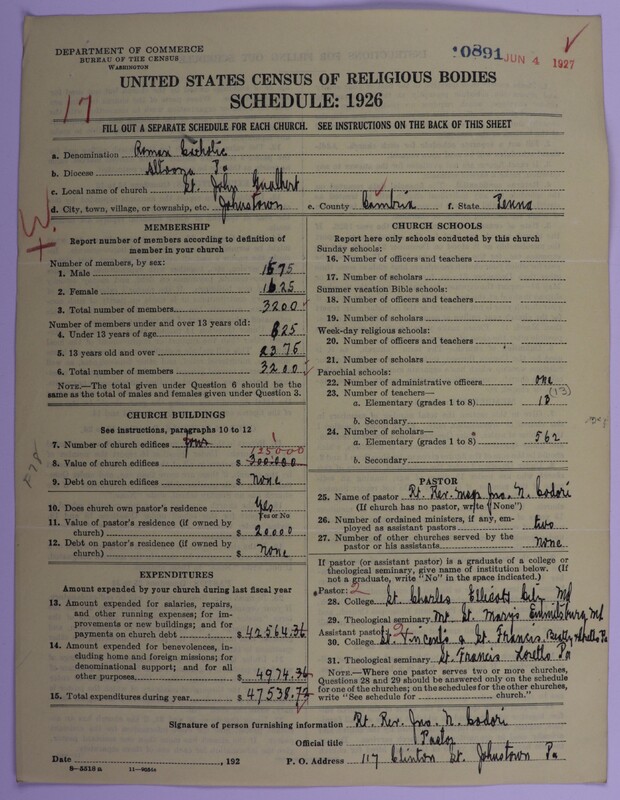 DEPARTMENT OF COMMERCE
BUREAU OF THE CENSUS
WASHINGTON
0891 JUN 4 1927
UNITED STATES CENSUS OF RELIGIOUS BODIES
SCHEDULE: 1926
17
FILL OUT A SEPARATE SCHEDULE FOR EACH CHURCH. SEE INSTRUCTIONS ON THE BACK OF THIS SHEET
a. Denomination Roman Catholic
b. Diocese Altoona Pa
c. Local name of church St. John Gualbert
d. City, town, village, or township, etc. Johnstown e. County Cambria f. State Penna
MEMBERSHIP
Report number of members according to definition of
member in your church
Number of members, by sex:
1. Male 1575
2. Female 1625
3. Total number of members 3200
Number of members under and over 13 years old:
4. Under 13 years of age 825
5. 13 years old and over 2375
6. Total number of members 3200
NOTE.—The total given under Question 6 should be the
same as the total of males and females given under Question 3.
CHURCH BUILDINGS
See instructions, paragraphs 10 to 12
7. Number of church edifices four 1
8. Value of church edifices $ 300.000
9. Debt on church edifices $ None
10. Does church own pastor's residence Yes
Yes or No
11. Value of pastor's residence (if owned by
church) $ 20000
12. Debt on pastor's residence (if owned by
church) $ None
EXPENDITURES
Amount expended by your church during last fiscal year
13. Amount expended for salaries, repairs,
and other running expenses; for im-
provements or new building; and for
payments on church debt $ 42564.36
14. Amount expended for benevolences,
including home and foreign missions; for
denominational support; and for all
other purposes $ 4974.36
15. Total expenditures during year $ 47538.72
CHURCH SCHOOLS
Report here only schools conducted by this church
Sunday schools:
16. Number of officers and teachers
17. Number of scholars
Summer vacation Bible schools:
18. Number of officers and teachers
19. Number of scholars
Week-day religious schools:
20. Number of officers and teachers
21. Number of scholars
Parochial schools:
22. Number of administrative officers one
23. Number of teachers—
a. Elementary (grades 1 to 8) 13 (13)
b. Secondary
24. Number of scholars—
a. Elementary (grades 1 to 8) 562
b. Secondary
PASTOR
25. Name of pastor Rt. Rev. Msgr Jno. N. Codori
(If church has no pastor, write "None")
26. Number of ordained ministers, if any, em-
ployed as assistant pastors two
27. Number of other churches served by the
pastor or his assistants None
If pastor (or assistant pastor) is a graduate of a college or
theological seminary, give name of institution below. (If
not a graduate, write "No" in the space indicated.)
Pastor: 2
28. College St. Charles Ellicott City Md
29. Theological seminary Mt. St. Marys Emmitsburg, Md
Assistant pastor: 2
30. College St. Vincents & St. Francis Loretto Pa
31. Theological seminary St. Francis Loretto Pa
NOTE.—Where one pastor serves two or more churches,
Questions 28 and 29 should be answered only on the schedule
for one of the churches; on the schedules for the other churches,
write "See schedule for church."
Signature of person furnishing information Rt. Rev. Jno. N. Codori
Official title Pastor
Date , 192 P. O. Address 117 Clinton St. Johnstown Pa
8—5518 a